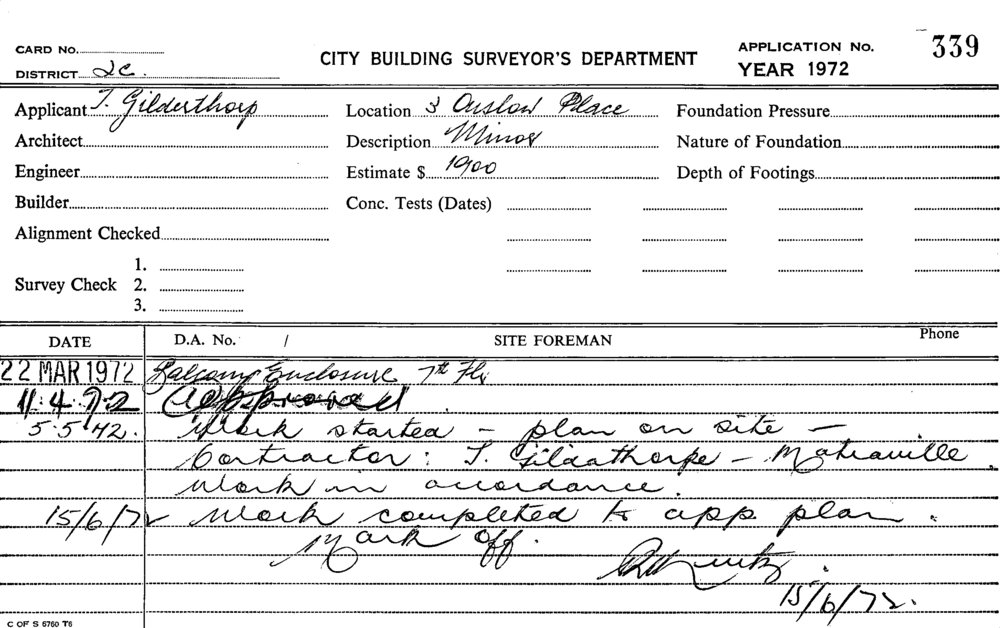 CARD No.
DISTRICT 2C.
CITY BUILDING SURVEYOR'S DEPARTMENT
APPLICATION No. 339
YEAR 1972
Applicant T. Gilderthorp
Location 3 Onslow Place
Foundation Pressure
Architect
Description Minor
Nature of Foundation
Engineer
Estimate $ 1900
Depth of Footings
Builder
Conc. Tests (Dates)
Alignment Checked
Survey Check 1.
2.
3.
DATE D.A. No. / SITE FOREMAN Phone
22 MAR 1972 Balcony Enclosure 7th Flr
11.4.72 Approved
5.5.72. Work started - plan on site -
Contractor: T. Gildathorpe - Matraville.
Work in accordance.
15/6/72 Work completed to app plan.
Mark off.
15/6/72.
C OF S 6760 T6